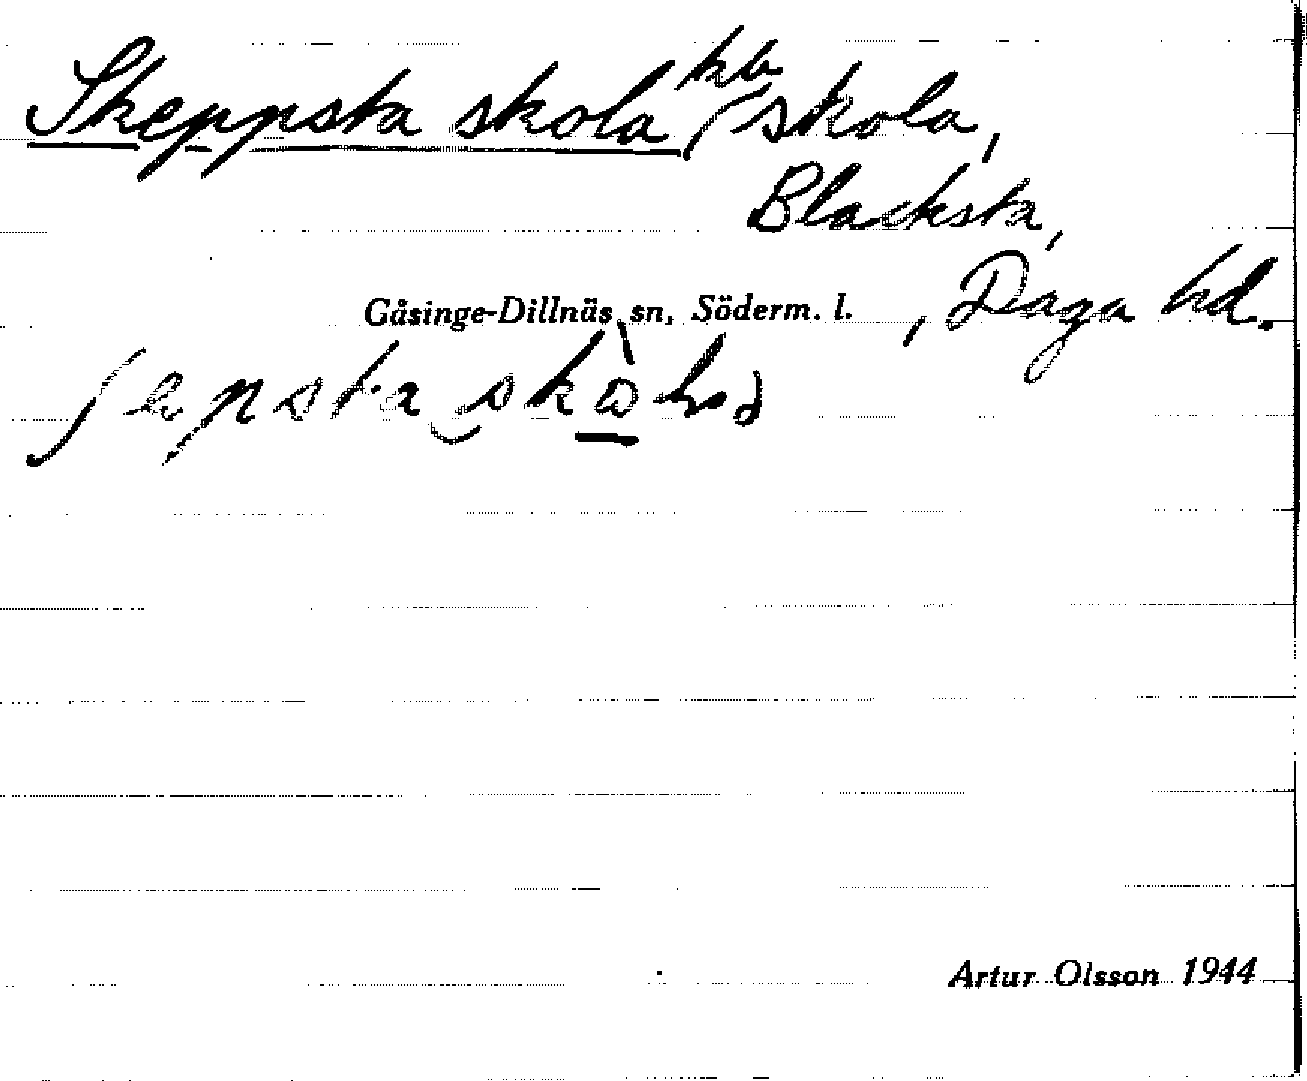 Skeppsta skola, klb skola,
Blacksta,
Gåsinge-Dillnäs sn, Söderm. l. , Daga hd.
Artur Olsson 1944